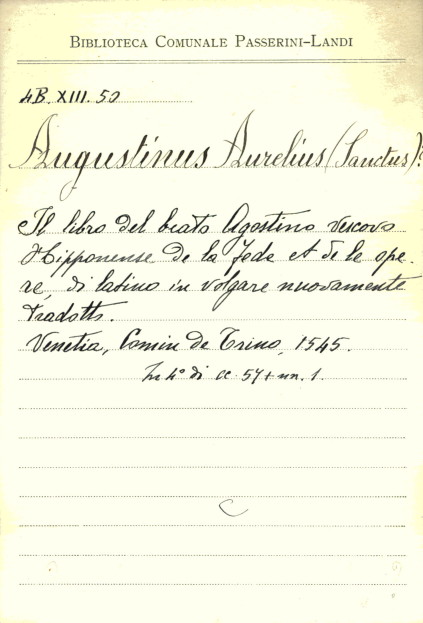 BIBLIOTECA COMUNALE PASSERINI-LANDI
4B. XIII. 50
Augustinus Aurelius (Sanctus):
Il libro del beato Agostino vescovo
Hipponense de la fede et de le ope-
re, di latino in volgare nuovamente
tradotto.
Venetia, Comin de Trino, 1545.
In 4° di cc. 57 + nn. 1.